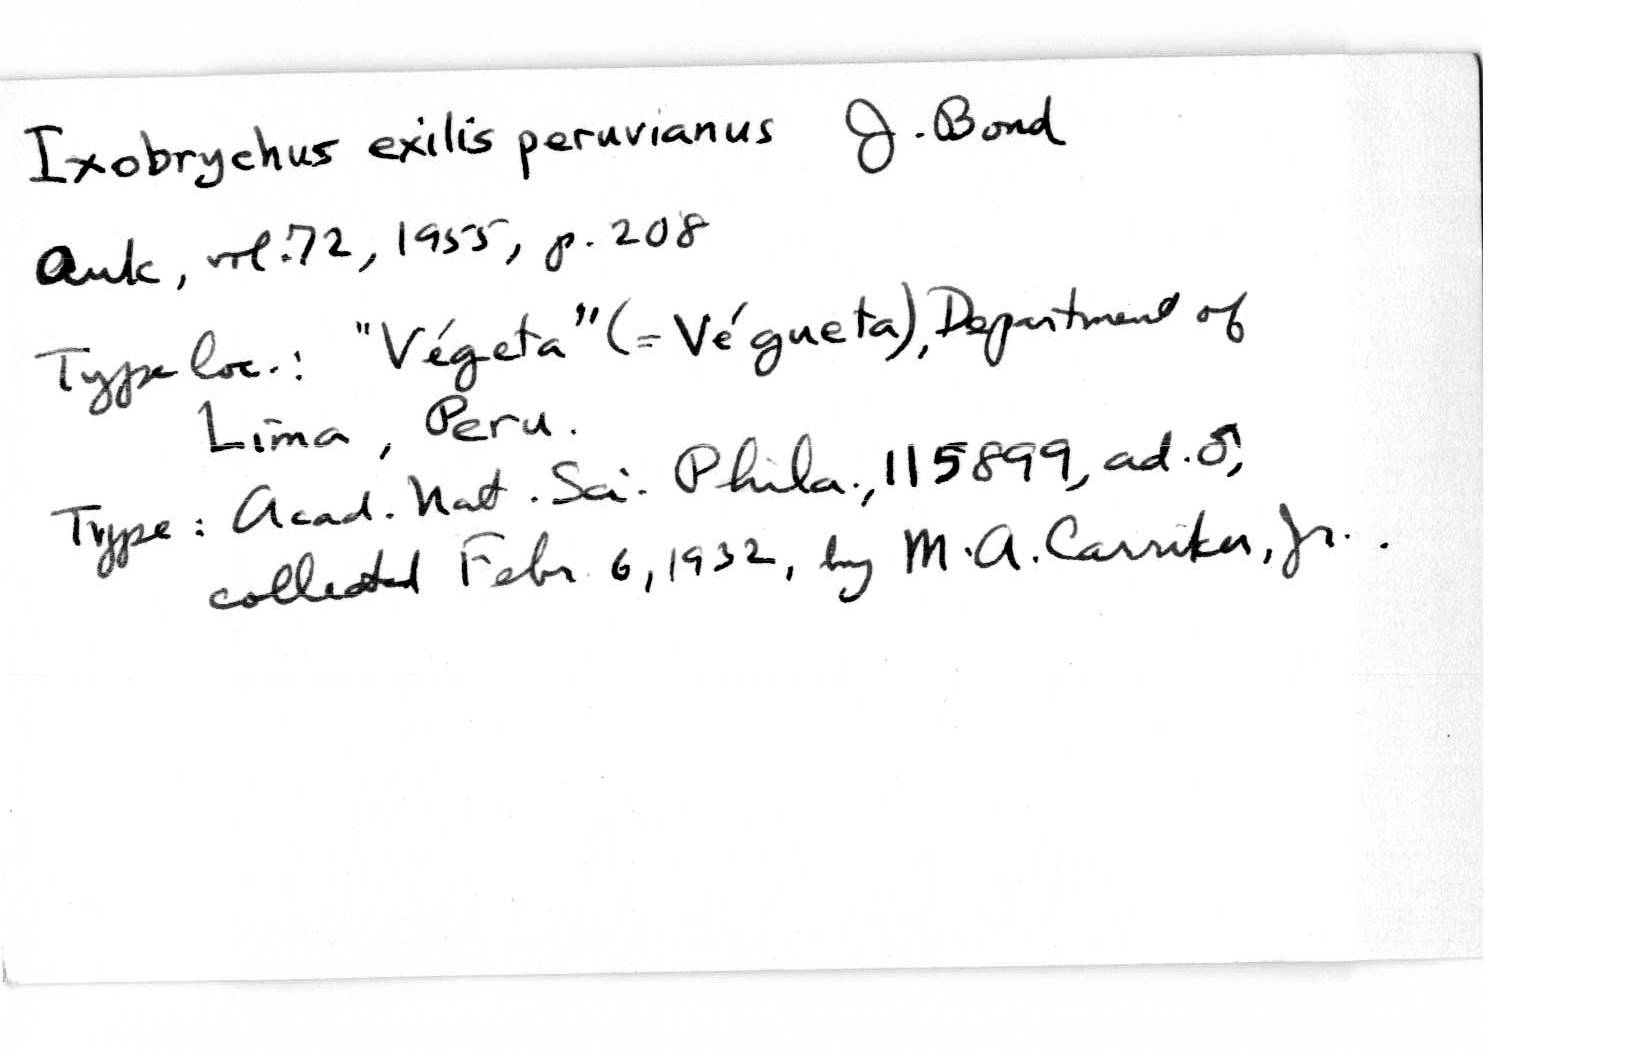 Ixobrychus exilis peruvianus J. Bond
Auk, vol. 72, 1955, p. 208
Type loc.: "Végeta" (= Végueta), Department of
Lima, Peru.
Type: Acad. Nat. Sci. Phila., 115899, ad. ♂,
collected Febr. 6, 1932, by M. A. Carriker, Jr..